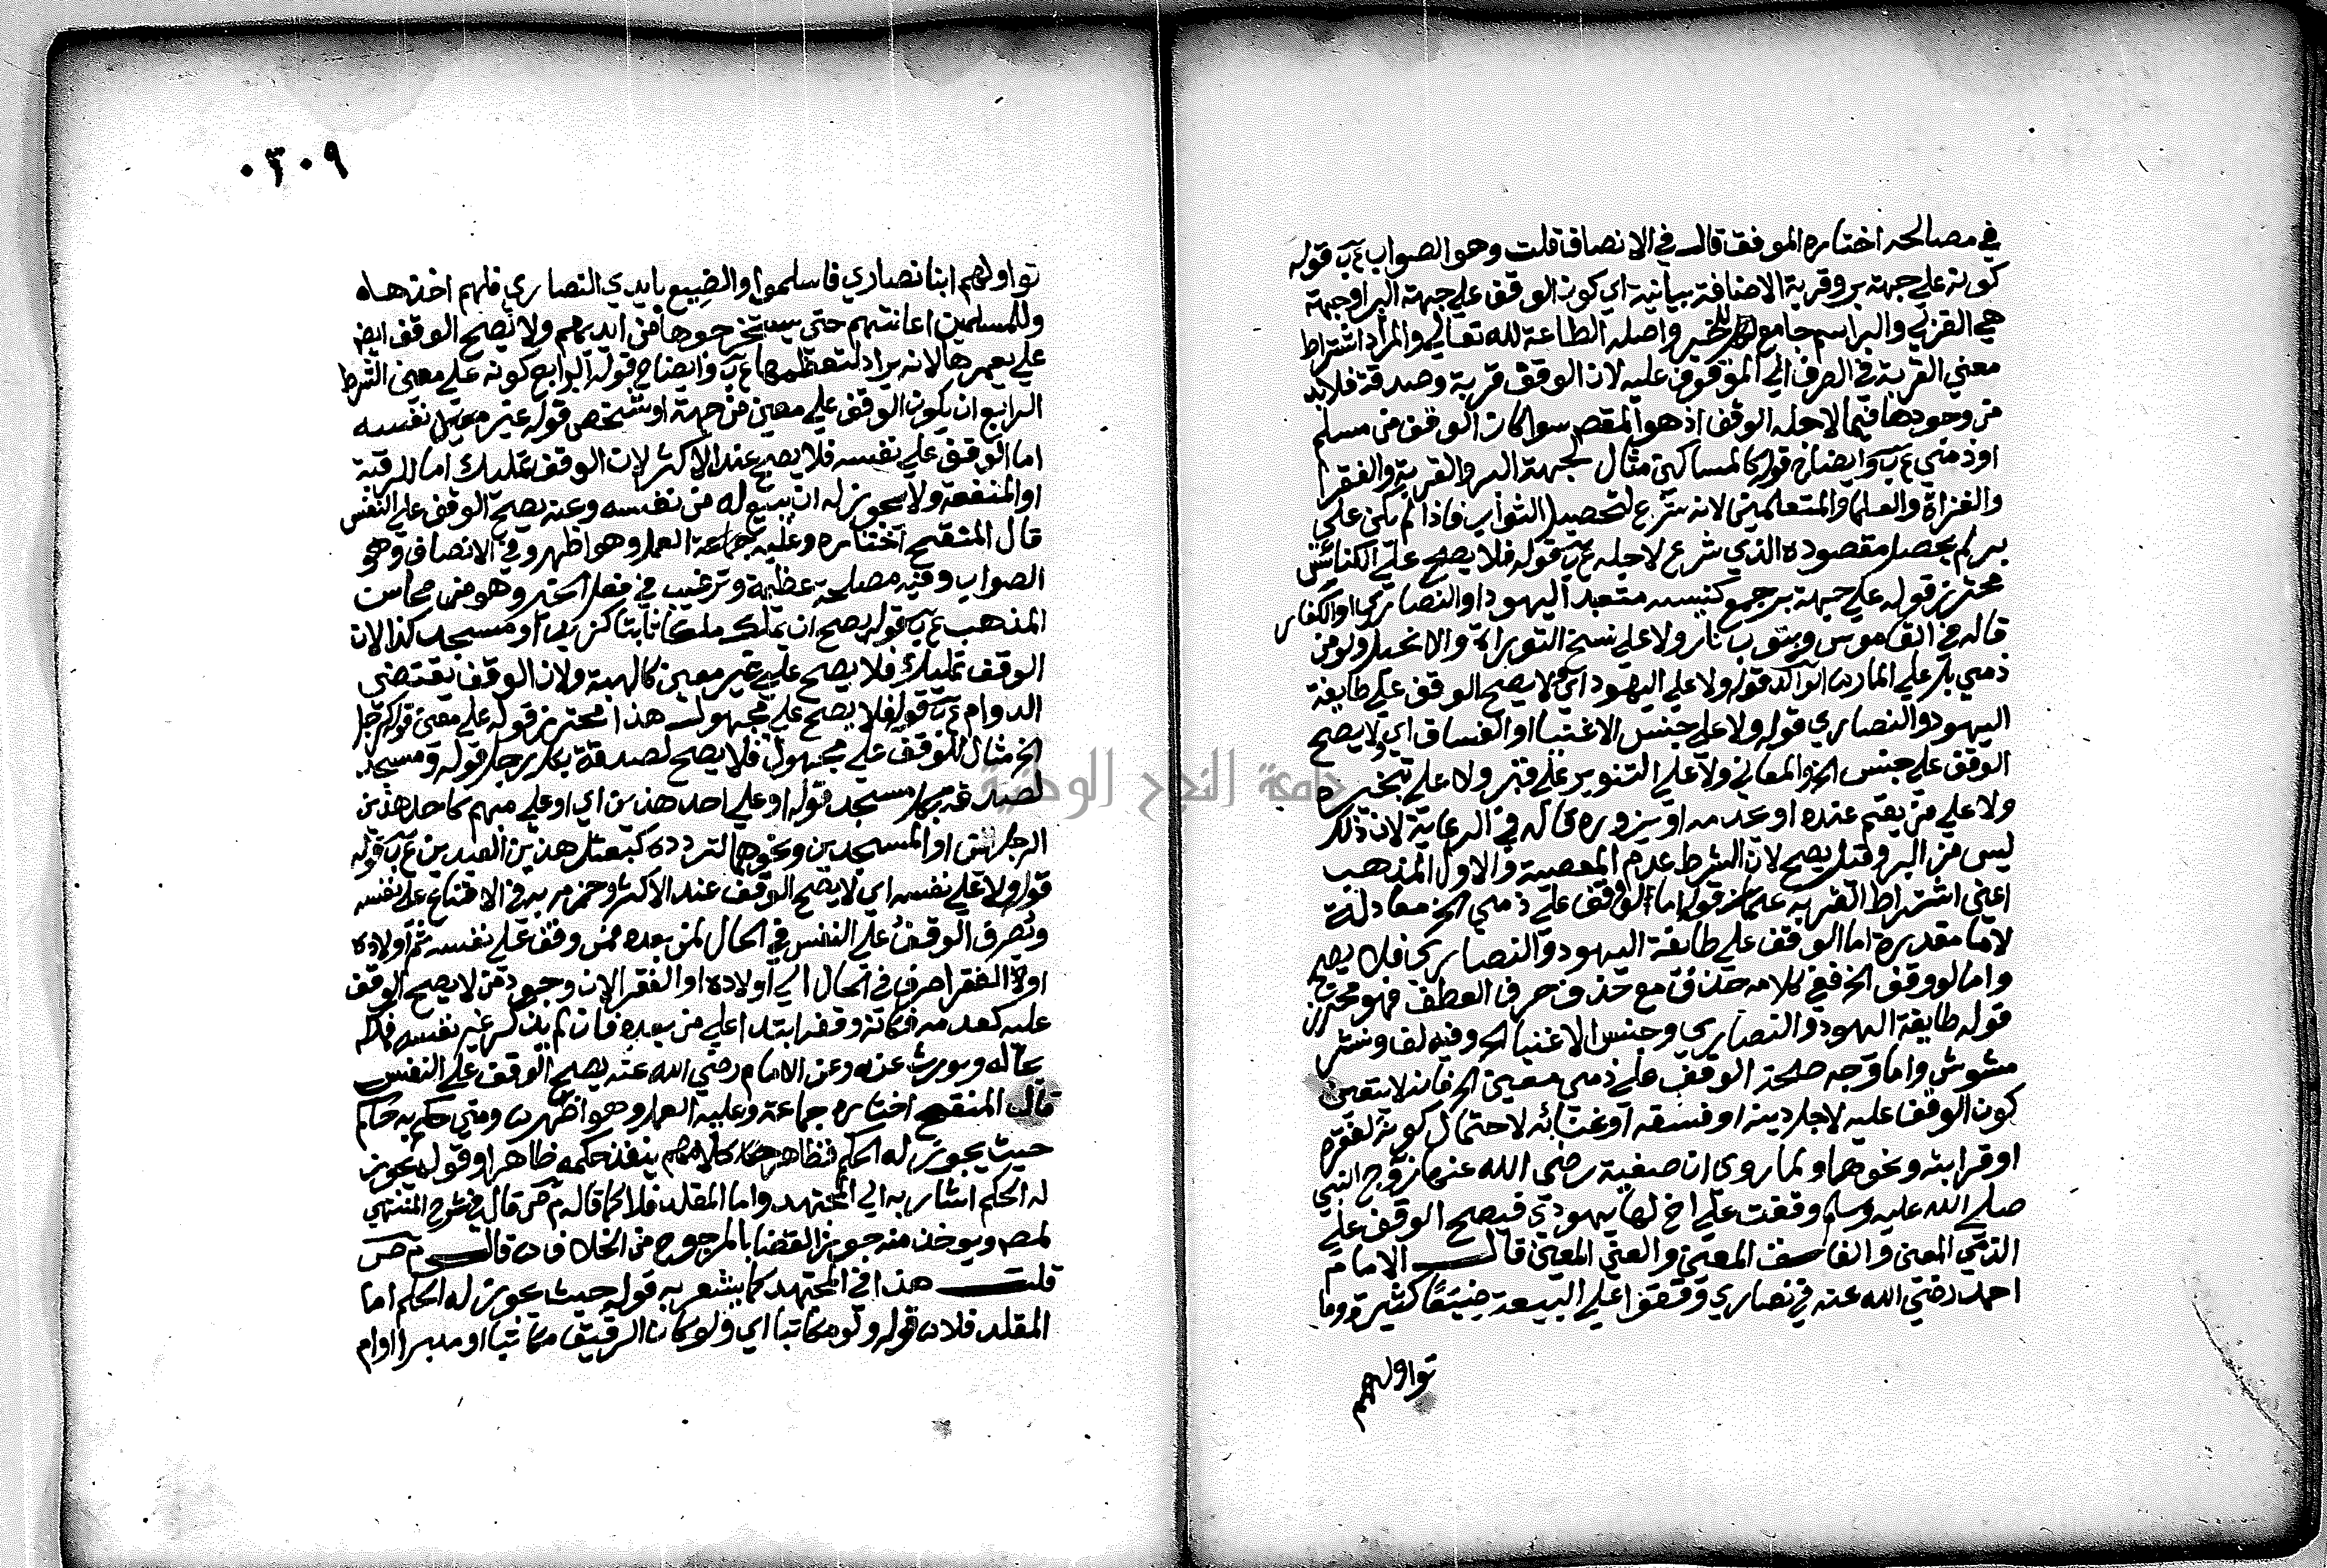 في مصالحه اختاره الموفق قال في الانصاف قلت وهو الصواب ع ب قوله
كونه على جهة بر وقربة الاضافة بيانية اي كون الوقف على جهة البر او جهة
هي القربي والبر اسم جامع لكل خير واصله الطاعة لله تعالى والمراد اشتراط
معني القربة في الصرف الي الموقوف عليه لان الوقف قربة وصدقة فلا بد
من وجودها فيما لاجله الوقف اذ هو المقصد سوا كان الوقف من مسلم
او ذمي ع ب وايضاح قوله كالمساكين مثال لجهة البر والقربة والفقرا
والغزاة والعلما والمتعلمين لانه شرع لتحصيل الثواب فاذا لم يكن علي
بر لم يحصل مقصوده الذي شرع لاجله ع ب قوله فلا يصح علي الكنائس
محترز قوله علي جهة بر جمع كنيسه متعبد اليهود او النصاري او الكفار
قاله في القاموس وبيوت نار ولا علي نسخ التوراة والانجيل ولو من
ذمي بل علي المار بها قوله ولا علي اليهود اي لا يصح الوقف علي طايفة
اليهود والنصاري قوله ولا علي جنس الاغنيا او الفساق اي لا يصح
الوقف علي جنس الخ والمغاني ولا علي التنوير علي قبر ولا علي تبخيره
ولا علي من يقيم عنده او يخدمه او يزوره قاله في الرعاية لان ذلك
ليس من البر وقيل يصح لان الشرط عدم المعصية والاول المذهب
اعني اشتراط القربه قوله اما الوقف علي ذمي الخ معادلة
لاما مقدرة اما الوقف علي طايفة اليهود والنصاري فلا يصح
واما لو وقف الخ ففي كلامه حذف مع حذف حرف العطف فهو محترز
قوله طايفة اليهود والنصاري وجنس الاغنيا الخ وفيه لف ونشر
مشوش واما وجه صحة الوقف علي ذمي معين الخ فانه لا يتعين
كون الوقف عليه لاجل دينه او فسقه او غنائه لاحتمال كونه لفقره
او قرابته ونحوهما ولما روى ان صفية رضي الله عنها زوج النبي
صلى الله عليه وسلم وقفت علي اخ لها يهودي فيصح الوقف علي
الذمي المعين والفاسق المعين والغني المعين قال الامام
احمد رضي الله عنه في نصاري وقفوا علي البيعة ضيعًا كثيرة وما
تواولهم
٠٣٠٩
تواولهم ابنا نصاري فاسلموا والضيع بايدي النصاري فلهم اخذها
وللمسلمين اعانتهم حتى يستخرجوها من ايديهم ولا يصح الوقف ايضا
علي يعمرها لانه يراد لتعظيمها ع ب وايضاح قوله الرابع كونه علي معين الشرط
الرابع ان يكون الوقف علي معين من جهة او شخص قوله غير معين نفسه
اما الوقف علي نفسه فلا يصح عند الاكثر لان الوقف تمليك اما للرقبة
او المنفعة ولا يجوز له ان يبيع له من نفسه وعنه يصح الوقف علي النفس
قال المنقح اختاره جماعة وعليه العمل وهو اظهر وفي الانصاف وهو
الصواب وفيه مصلحة عظيمة وترغيب في فعل الخير وهو من محاسن
المذهب ع ب قوله يصح ان يملك ملكا ثابتا كزيد او مسجد كذا لان
الوقف تمليك فلا يصح علي غير معين كالهبة ولان الوقف يقتضي
الدوام ع ب قوله فلا يصح علي مجهول هذا محترز قوله علي معين قوله كرجل
الخ مثال للوقف علي مجهول فلا يصح لصدقة بكل رجل قوله ومسجد
لصدقه بكل مسجد قوله او علي احد هذين اي او علي مبهم كاحد هذين
الرجلين او المسجدين ونحوهما لتردده كبعتك هذين العبدين ع ب قوله
قوله ولا علي نفسه اي لا يصح الوقف عند الاكثر وجزم به في الاقناع علي نفسه
ويصرف الوقف علي النفس في الحال لمن بعده فمن وقف علي نفسه ثم اولاده
او الفقرا صرف في الحال الي اولاده او الفقرا لان وجود من لا يصح الوقف
عليه كعدمه فكانه وقف ابتدا علي من بعده فان لم يذكر غير نفسه فملكه
بحاله ويورث عنه وعن الامام رضي الله عنه يصح الوقف علي النفس
قال المنقح اختاره جماعة وعليه العمل وهو اظهر ومتي حكم به حاكم
حيث يجوز له الحكم فظاهر كلامهم ينفذ حكمه ظاهرا وقوله يجوز
له الحكم اشار به الي المجتهد واما المقلد فلا كما قاله م ص قال في شرح المنتهي
لمص ويوخذ منه جواز القضا بالمرجوح من الخلاف قال م ص
قلت هذا في المجتهد كما يشعر به قوله حيث يجوز له الحكم اما
المقلد فلا قوله ولو مكاتبا اي ولو كان الرقيق مكاتبا او مدبرا او ام
جامعة النجاح الوطنية